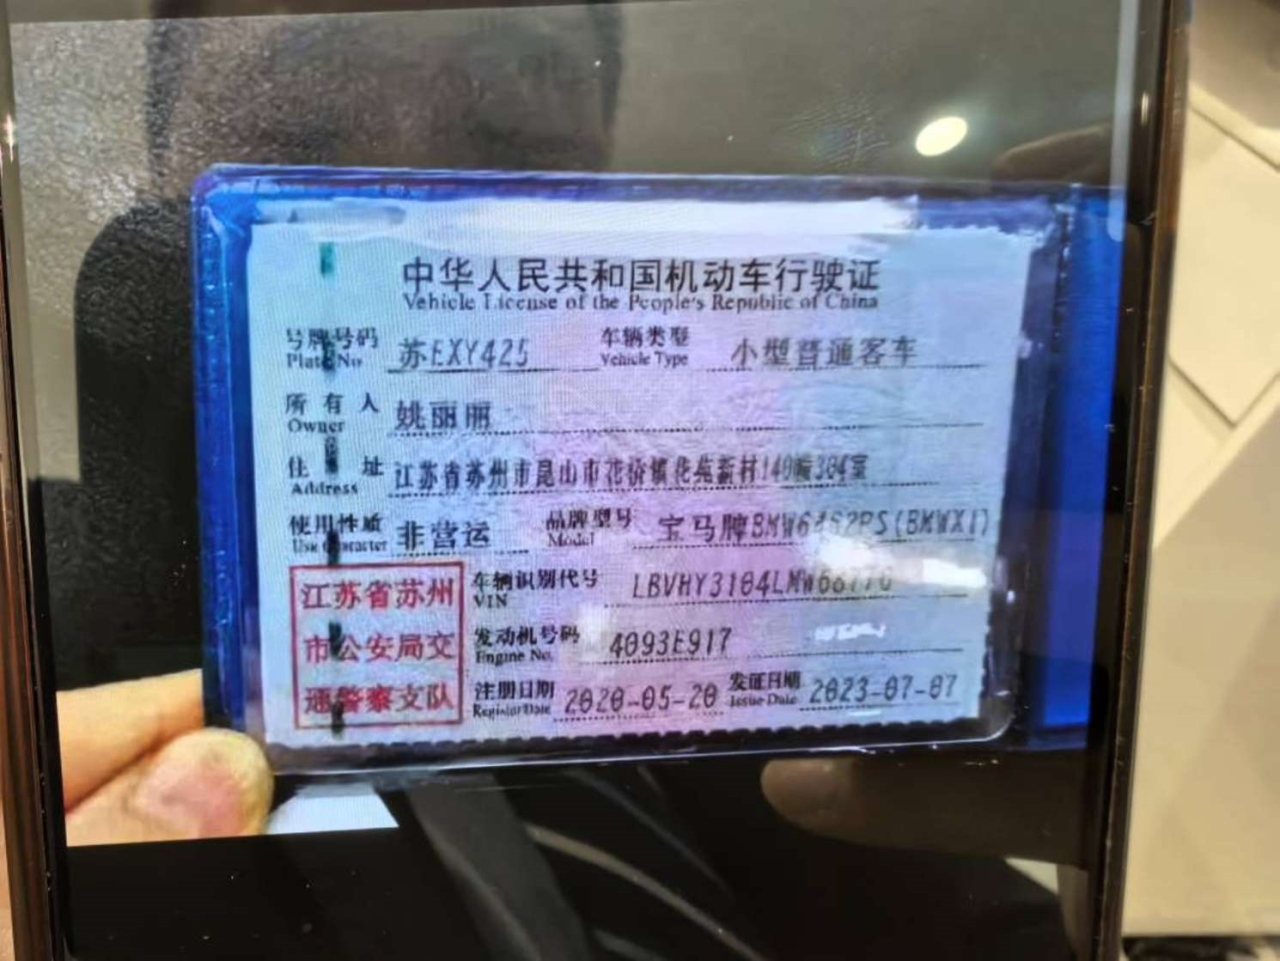 中华人民共和国机动车行驶证
Vehicle License of the People's Republic of China
号牌号码 苏EXY425 车辆类型 小型普通客车
Plate No Vehicle Type
所有人 姚丽丽
Owner
住址 江苏省苏州市昆山市花桥镇花苑新村140幢304室
Address
使用性质 非营运 品牌型号 宝马牌BMW6462PS(BMWX1)
Use Character Model
江苏省苏州
市公安局交
通警察支队
车辆识别代号
VIN
发动机号码 4093E917
Engine No.
注册日期 2020-05-20 发证日期 2023-07-07
Register Date Issue Date